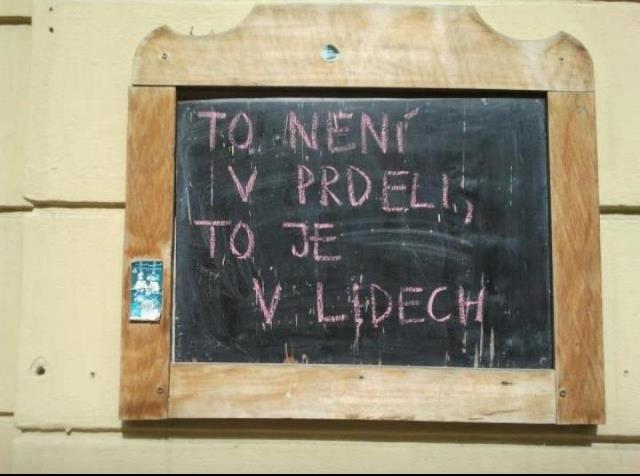 TO NENÍ
V PRDELI,
TO JE
V LIDECH